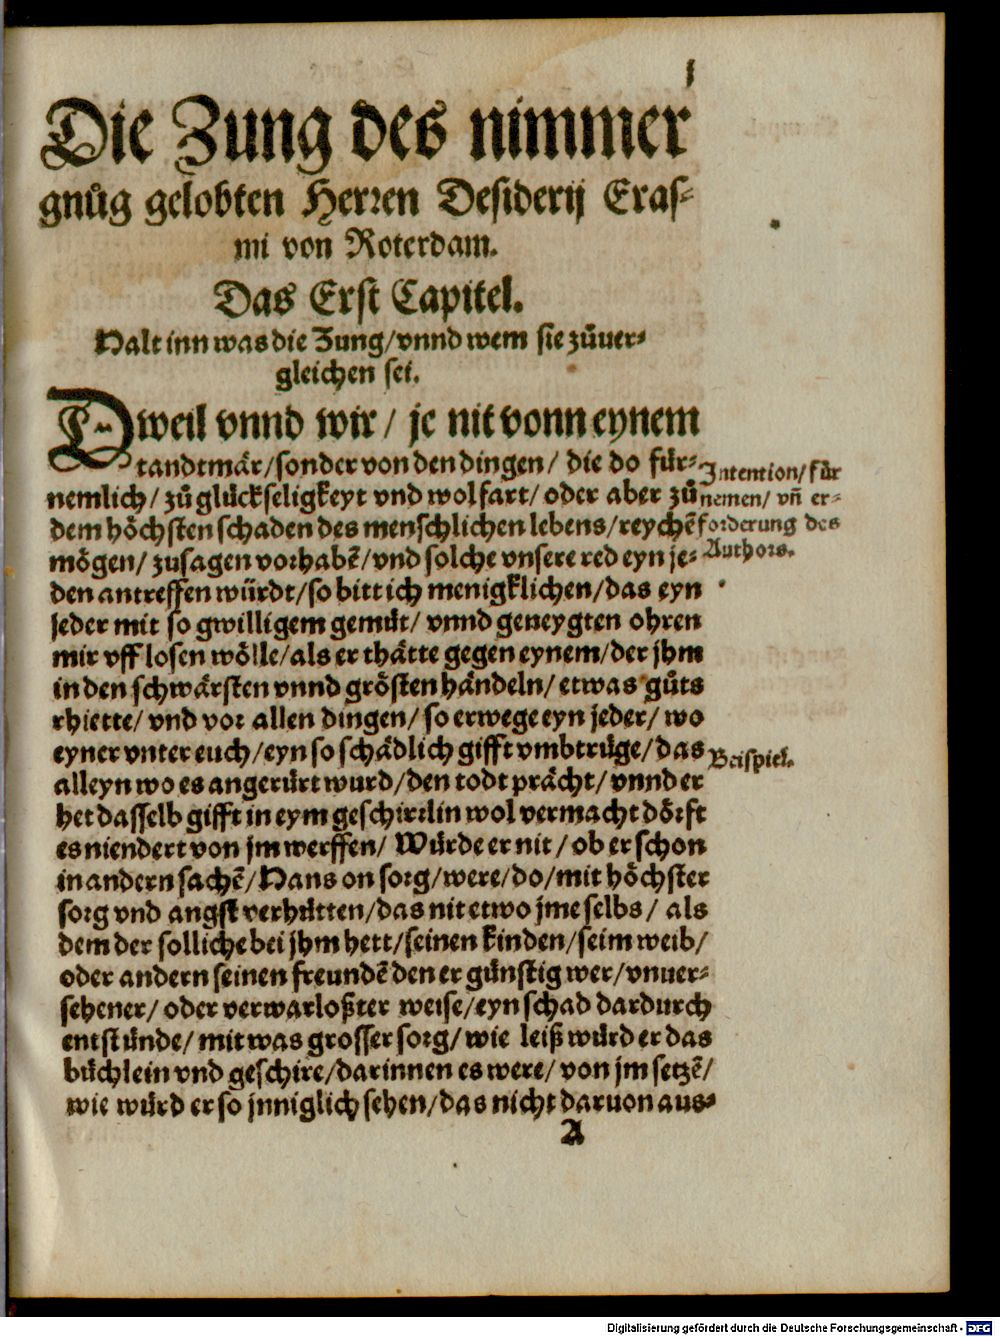 1
Die Zung des nimmer
gnůg gelobten Herren Desiderij Eras⸗
mi von Roterdam.
Das Erst Capitel.
Halt inn was die Zung/vnnd wem sie zůuer⸗
gleichen sei.
Dweil vnnd wir/ je nit vonn eynem
tandtmär/sonder von den dingen/ die do für⸗
nemlich/ zů glückseligkeyt vnd wolfart/ oder aber zů
dem höchsten schaden des menschlichen lebens/reychẽ
mögen/ zusagen vorhabẽ/vnd solche vnsere red eyn je⸗
den antreffen würdt/so bitt ich menigklichen/das eyn
jeder mit so gwilligem gemüt/ vnnd geneygten ohren
mir vff losen wölle/als er thätte gegen eynem/der jhm
in den schwärsten vnnd grösten händeln/ etwas gůts
rhiette/ vnd vor allen dingen/ so erwege eyn jeder/ wo
eyner vnter euch/eyn so schädlich gifft vmbtrüge/das
alleyn wo es angerürt wurd/den todt prächt/ vnnd er
het dasselb gifft in eym geschirrlin wol vermacht dörft
es niendert von jm werffen/ Würde er nit/ ob er schon
in andern sachẽ/Hans on sorg/were/do/mit höchster
sorg vnd angst verhütten/das nit etwo jme selbs/ als
dem der solliche bei jhm hett/seinen kinden/seim weib/
oder andern seinen freundẽ den er günstig wer/vnuer⸗
sehener/ oder verwarloßter weise/eyn schad dardurch
entstünde/ mit was grosser sorg/ wie leiß würd er das
büchlein vnd geschire/darinnen es were/ von jm setzẽ/
wie würd er so jnniglich sehen/das nicht daruon aus⸗
A
Intention/ für
nemen/ vñ er⸗
forderung des
Authors.
Beispiel.
Digitalisierung gefördert durch die Deutsche Forschungsgemeinschaft - DFG